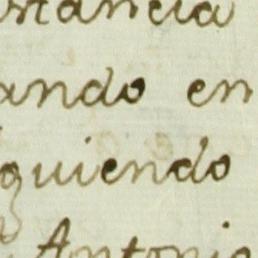 stancia
ando en
guiendo
Antonio